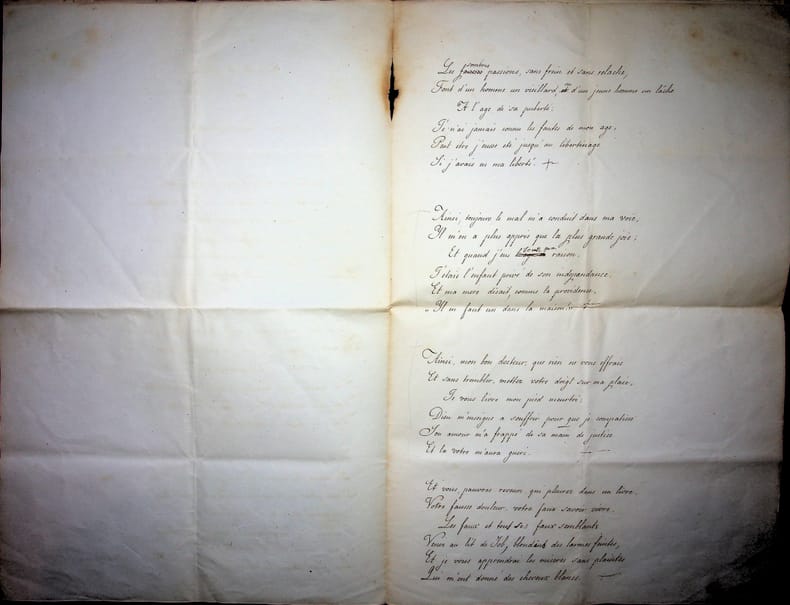 sombres
Les passions, sans frein et sans relache,
Font d'un homme un vieillard, et d'un jeune homme un lâche
A l'age de sa puberté.
Je n'ai jamais connu les fautes de mon age,
Peut être j'eusse été jusqu'au libertinage
Si j'avais eu ma liberté.
Ainsi, toujours le mal m'a conduit dans ma voie,
Il m'en a plus appris que la plus grande joie;
Et quand j'eus raison.
J'étais l'enfant privé de son indépendance.
Et ma mere disait, comme la providence,
"Il en faut un dans la maison."
Ainsi, mon bon docteur, que rien ne vous effraie
Et sans trembler, mettez votre doigt sur ma plaie,
Je vous livre mon pied meurtri;
Dieu m'enseigne a souffrir pour que je compatisse
Son amour m'a frappé de sa main de justice
Et la votre m'aura guéri.
Et vous pauvres reveurs qui pleurez dans un livre.
Votre fausse douleur, votre faux savoir vivre.
Les faux et tous ses faux semblants
Venez au lit de Job, blonds des larmes feintes,
Et je vous apprendrai les miseres sans plaintes
Qui m'ont donné des cheveux blancs.